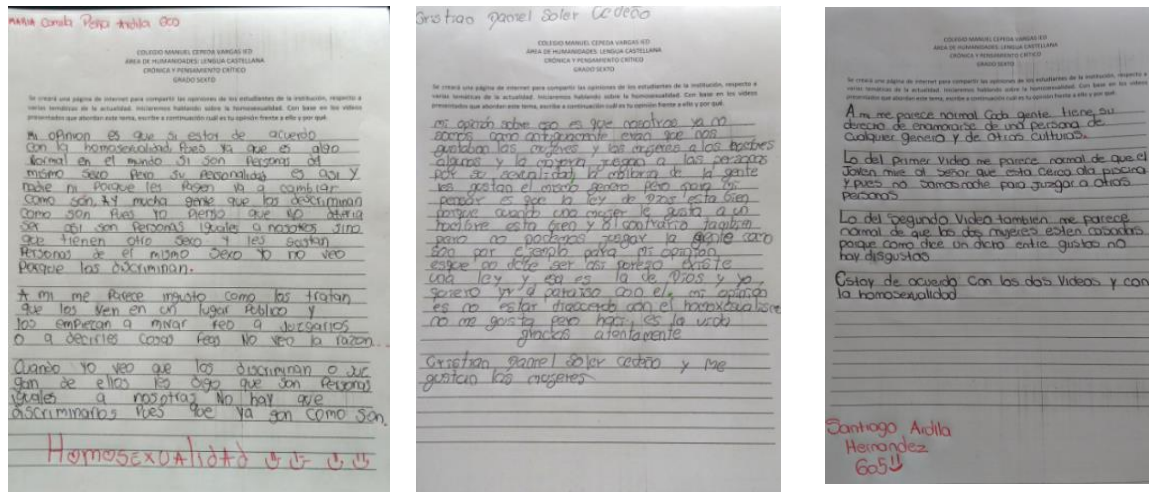 MARIA Camila Peña Ardila 600
COLEGIO MANUEL CEPEDA VARGAS IED
ÁREA DE HUMANIDADES: LENGUA CASTELLANA
CRÓNICA Y PENSAMIENTO CRÍTICO
GRADO SEXTO
Se creará una página de internet para compartir las opiniones de los estudiantes de la institución, respecto a
varias temáticas de la actualidad. Iniciaremos hablando sobre la homosexualidad. Con base en los videos
presentados que abordan este tema, escribe a continuación cuál es tu opinión frente a ello y por qué.
Mi opinion es que si estoy de acuerdo
con la homosexualidad Pues ya que es algo
Normal en el mundo si son Personas del
mismo sexo Pero su Personalidad es asi y
nadie ni Porque les Pagen va a cambiar
como son, Ay mucha gente que los descriminan
como son Pues Yo Pienso que no
ser asi son Personas iguales a nosotros sino
que tienen otro sexo y les gustan
Personas de el mismo sexo Yo no veo
Porque los discriminan.
A mi me Parece ingusto como los tratan
que los ven en un lugar Publico y
los empiezan a mirar feo a Juzgarlos
o a decirles cosas feas No veo la razon...
Cuando Yo veo que los discriminan o Juz
gan de ellos les digo que son Personas
iguales a nosotras No hay que
discriminarlos Pues que ya son como son.
HomosexualidAd
Cristian Daniel Soler Cedeño
COLEGIO MANUEL CEPEDA VARGAS IED
ÁREA DE HUMANIDADES: LENGUA CASTELLANA
CRÓNICA Y PENSAMIENTO CRÍTICO
GRADO SEXTO
Se creará una página de internet para compartir las opiniones de los estudiantes de la institución, respecto a
varias temáticas de la actualidad. Iniciaremos hablando sobre la homosexualidad. Con base en los videos
presentados que abordan este tema, escribe a continuación cuál es tu opinión frente a ello y por qué.
mi opinión sobre eso es que nosotros ya no
somos como antiguamente eran que nos
gustaban las mujeres y las mujeres a los hombres
algunos y la mayoria juzgan a las personas
por su sexualidad, la mayoria de la gente
les gustan el mismo genero pero para mi
pensar es que la ley de Dios esta bien
porque cuando una mujer le gusta a un
hombre esta bien y al contrario tambien
pero no podemos jusgar la gente como
son por ejemplo para mi opinion
esque no debe ser asi poreso existe
una ley y esa es la de Dios y yo
quiero ir al paraiso con el, mi opinion
es no estar deacuerdo con el
no me gusta pero es la vida
gracias atentamente
Cristian Daniel Soler Cedeño y me
gustan las mujeres
COLEGIO MANUEL CEPEDA VARGAS IED
ÁREA DE HUMANIDADES: LENGUA CASTELLANA
CRÓNICA Y PENSAMIENTO CRÍTICO
GRADO SEXTO
Se creará una página de internet para compartir las opiniones de los estudiantes de la institución, respecto a
varias temáticas de la actualidad. Iniciaremos hablando sobre la homosexualidad. Con base en los videos
presentados que abordan este tema, escribe a continuación cuál es tu opinión frente a ello y por qué.
A mi me parece normal Cada gente tiene su
derecho de enamorarse de un persona de
Cualquier genero y de otras culturas.
Lo del primer Video me parece normal de que el
joven mire al señor que esta cerca ala piscina
y pues no somos nadie para juzgar a otras
personas
Lo del Segundo Video tambien me parece
normal de que las dos mujeres esten casadas
porque como dice un dicho entre gustos no
hay disgustos
Estoy de acuerdo Con los dos Videos y con
la homosexualidad
Santiago Ardila
Hernandez
605